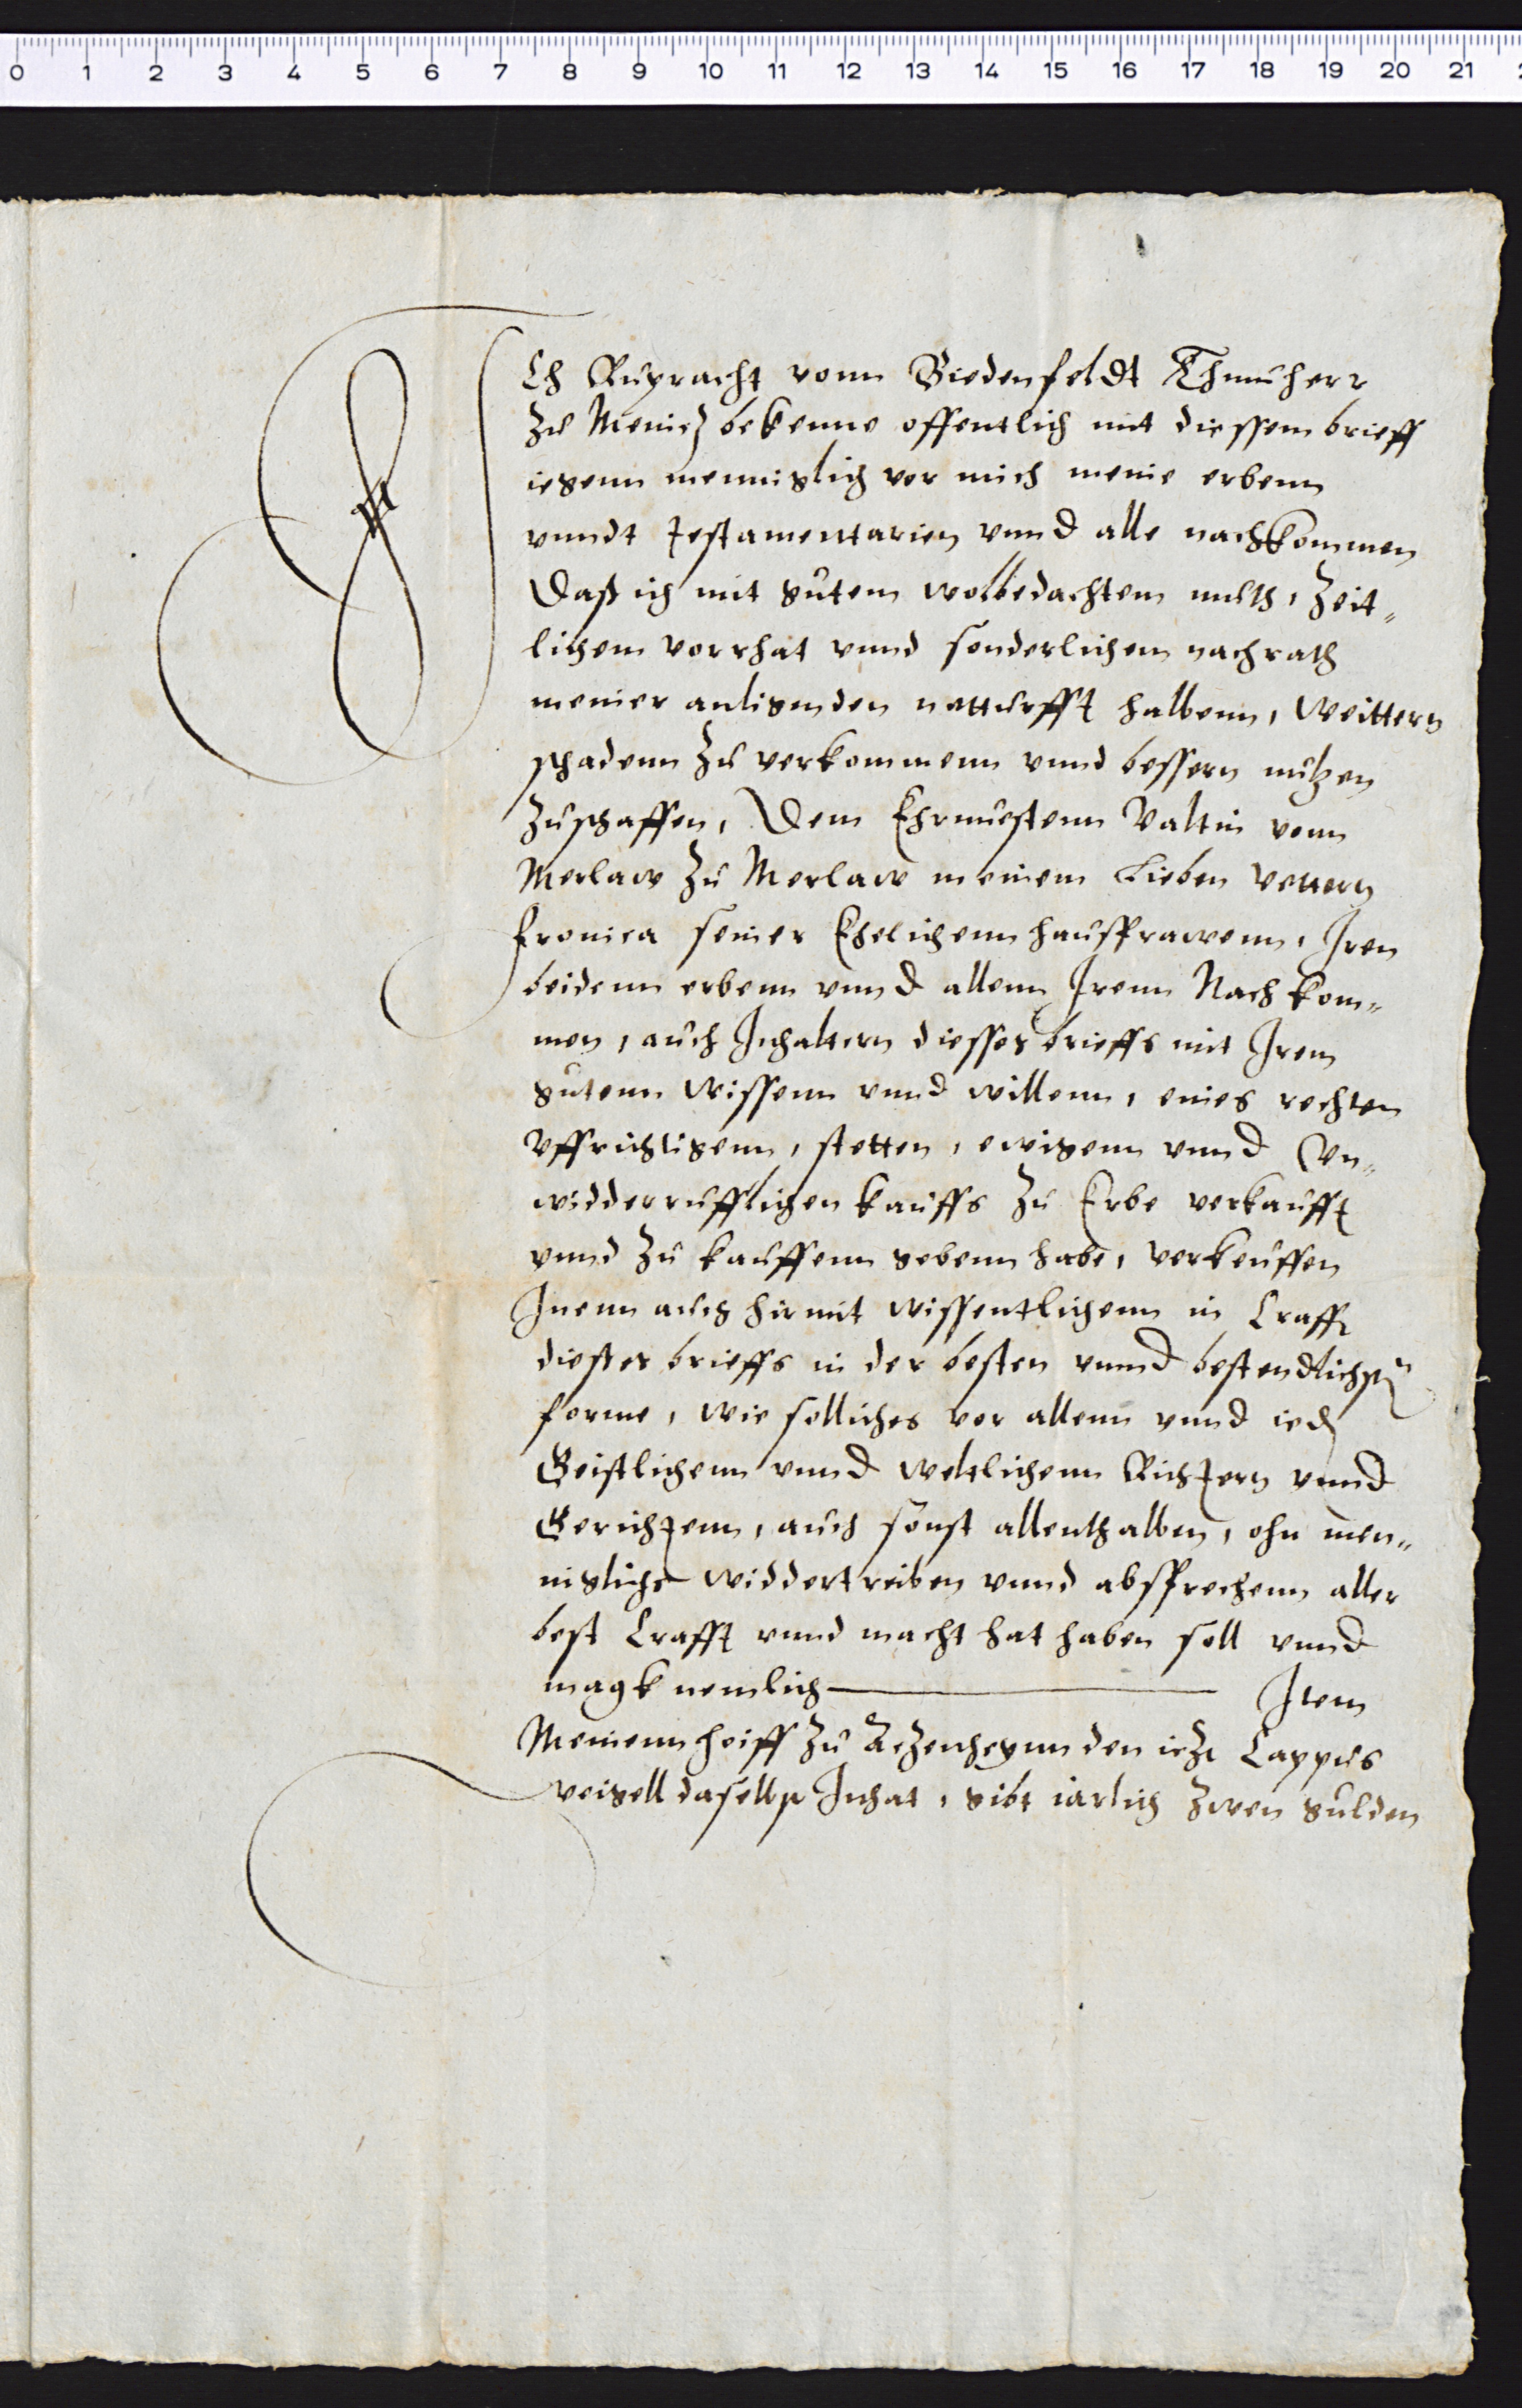 0 1 2 3 4 5 6 7 8 9 10 11 12 13 14 15 16 17 18 19 20 21
ICh Rupracht vonn Biedenfeldt Thumherr
zu Meincz bekenne offentlich mit diessem brieff
iegenn menniglich vor mich meine erbenn
vnndt Testamentarien vnnd alle nachkommen
Daß ich mit gutem wolbedachtem muth, Zeit„
lichem vorrhat vnnd sonderlichem nachrath
meiner anligenden notturfft halbenn, Weittern
schadenn zu verkommenn vnnd bessern nutzen
zuschaffen, Dem Ehrnuestenn Valtin vonn
Merlaw zu Merlaw meinem Lieben Vettern
fronica seiner Ehelichenn hausfrawenn, Iren
beidenn erbenn vnnd allenn Irenn Nachkom„
men, auch Inhaltern diesses brieffs mit Irem
gutenn Wissenn vnnd willenn, eines rechten
Vffrichtigenn, stetten, ewigenn vnnd Vn„
widderrufflichen kauffs zu Erbe verkaufft
vnnd zu kauffenn gebenn habe, verkeuffen
Inenn auch hirmit wissentlichenn in Crafft
dießes brieffs in der besten vnnd bestendlichstn
forme, wie solliches vor allenn vnnd iedn
Geistlichenn vnnd weltlichenn Richtern vnnd
Gerichtenn, auch sonst allenthalben, ohn men„
nigliche widdertreiben vnnd absprechenn aller
best Crafft vnnd macht hat haben soll vnnd
magk nemlich Item
Meinenn hoiff zu den ietzt Cappus
veigell daselbst Inhat, gibt iarlich zwen gulden